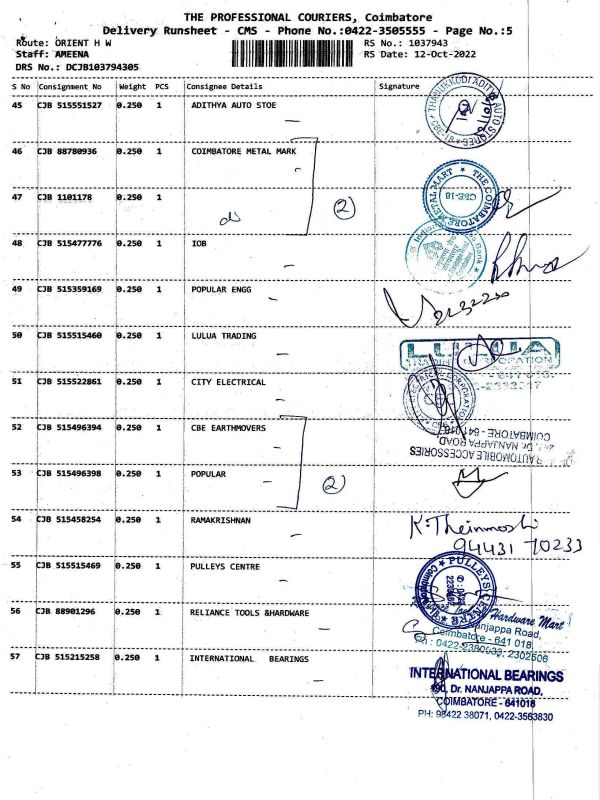 THE PROFESSIONAL COURIERS, Coimbatore
Delivery Runsheet - CMS - Phone No.:0422-3505555 - Page No.:5
Route: ORIENT H W RS No.: 1037943
Staff: AMEENA RS Date: 12-Oct-2022
DRS No.: DCJB103794305
S No Consignment No Weight PCS Consignee Details Signature
45 CJB 515551527 0.250 1 ADITHYA AUTO STOE
46 CJB 88780936 0.250 1 COIMBATORE METAL MARK
THE COIMBATORE METAL MART
CBE-18
47 CJB 1101178 0.250 1
2
48 CJB 515477776 0.250 1 IOB
49 CJB 515359169 0.250 1 POPULAR ENGG
50 CJB 515515460 0.250 1 LULUA TRADING
LULUA
51 CJB 515522861 0.250 1 CITY ELECTRICAL
52 CJB 515496394 0.250 1 CBE EARTHMOVERS
COIMBATORE - 641 018.
Dr. NANJAPPA ROAD,
AUTOMOBILE ACCESSORIES
53 CJB 515496398 0.250 1 POPULAR
2
54 CJB 515458254 0.250 1 RAMAKRISHNAN
94431 70233
55 CJB 515515469 0.250 1 PULLEYS CENTRE
PULLEYS CENTRE
56 CJB 88901296 0.250 1 RELIANCE TOOLS &HARDWARE
Hardware Mart
Nanjappa Road,
Coimbatore - 641 018
57 CJB 515215258 0.250 1 INTERNATIONAL BEARINGS
INTERNATIONAL BEARINGS
Dr. NANJAPPA ROAD,
COIMBATORE - 641018
PH: 98422 38071, 0422-3563830